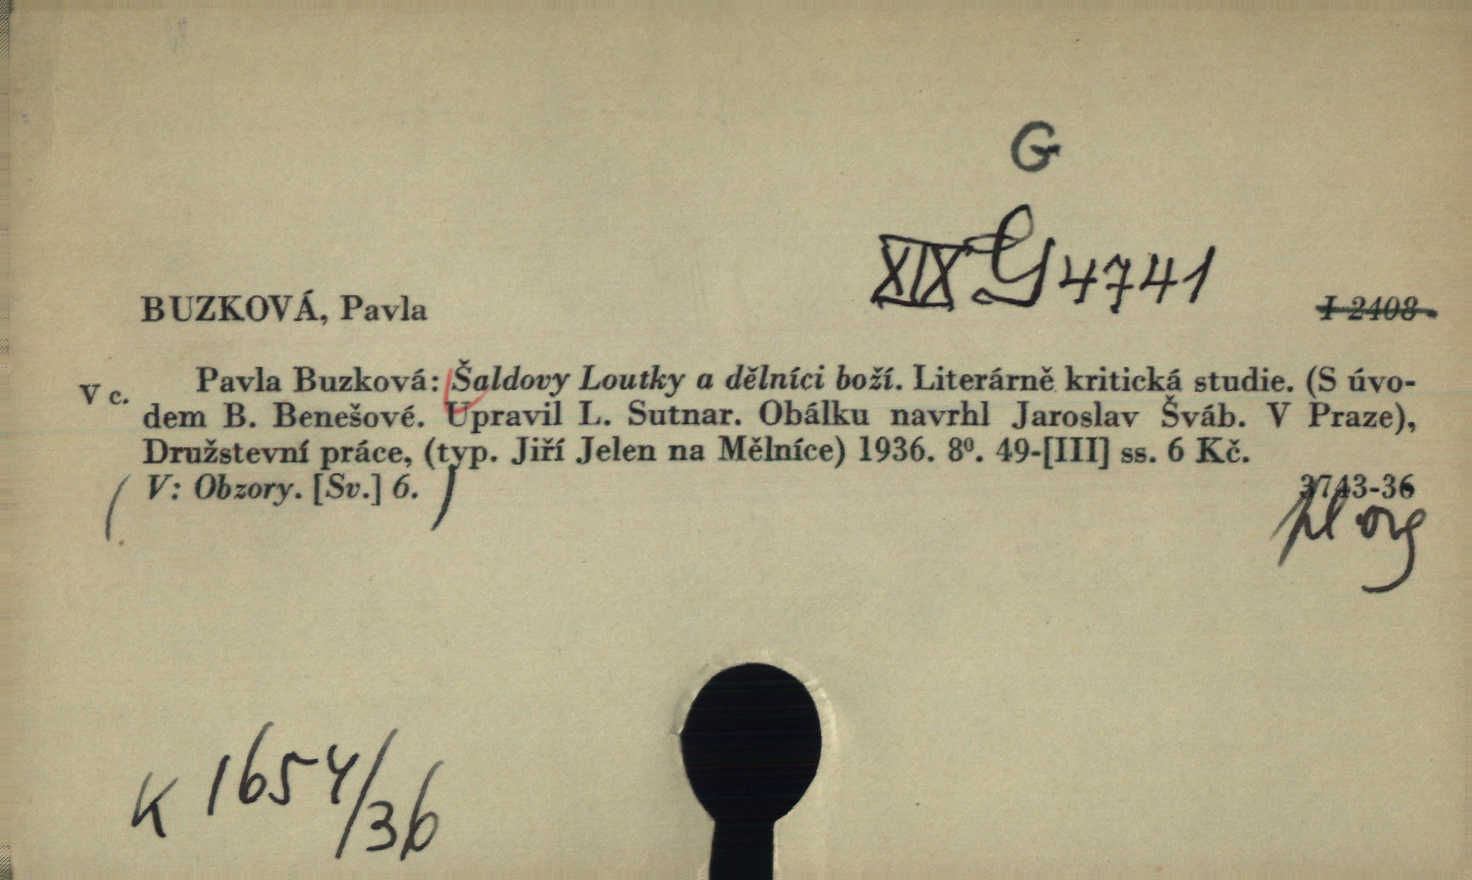 G
XIX G 4741
BUZKOVÁ, Pavla
I 2408
V c.
Pavla Buzková: Šaldovy Loutky a dělníci boží. Literárně kritická studie. (S úvo-
dem B. Benešové. Upravil L. Sutnar. Obálku navrhl Jaroslav Šváb. V Praze),
Družstevní práce, (typ. Jiří Jelen na Mělníce) 1936. 8⁰. 49-[III] ss. 6 Kč.
(V: Obzory. [Sv.] 6.)
3743-36
K 1654/36